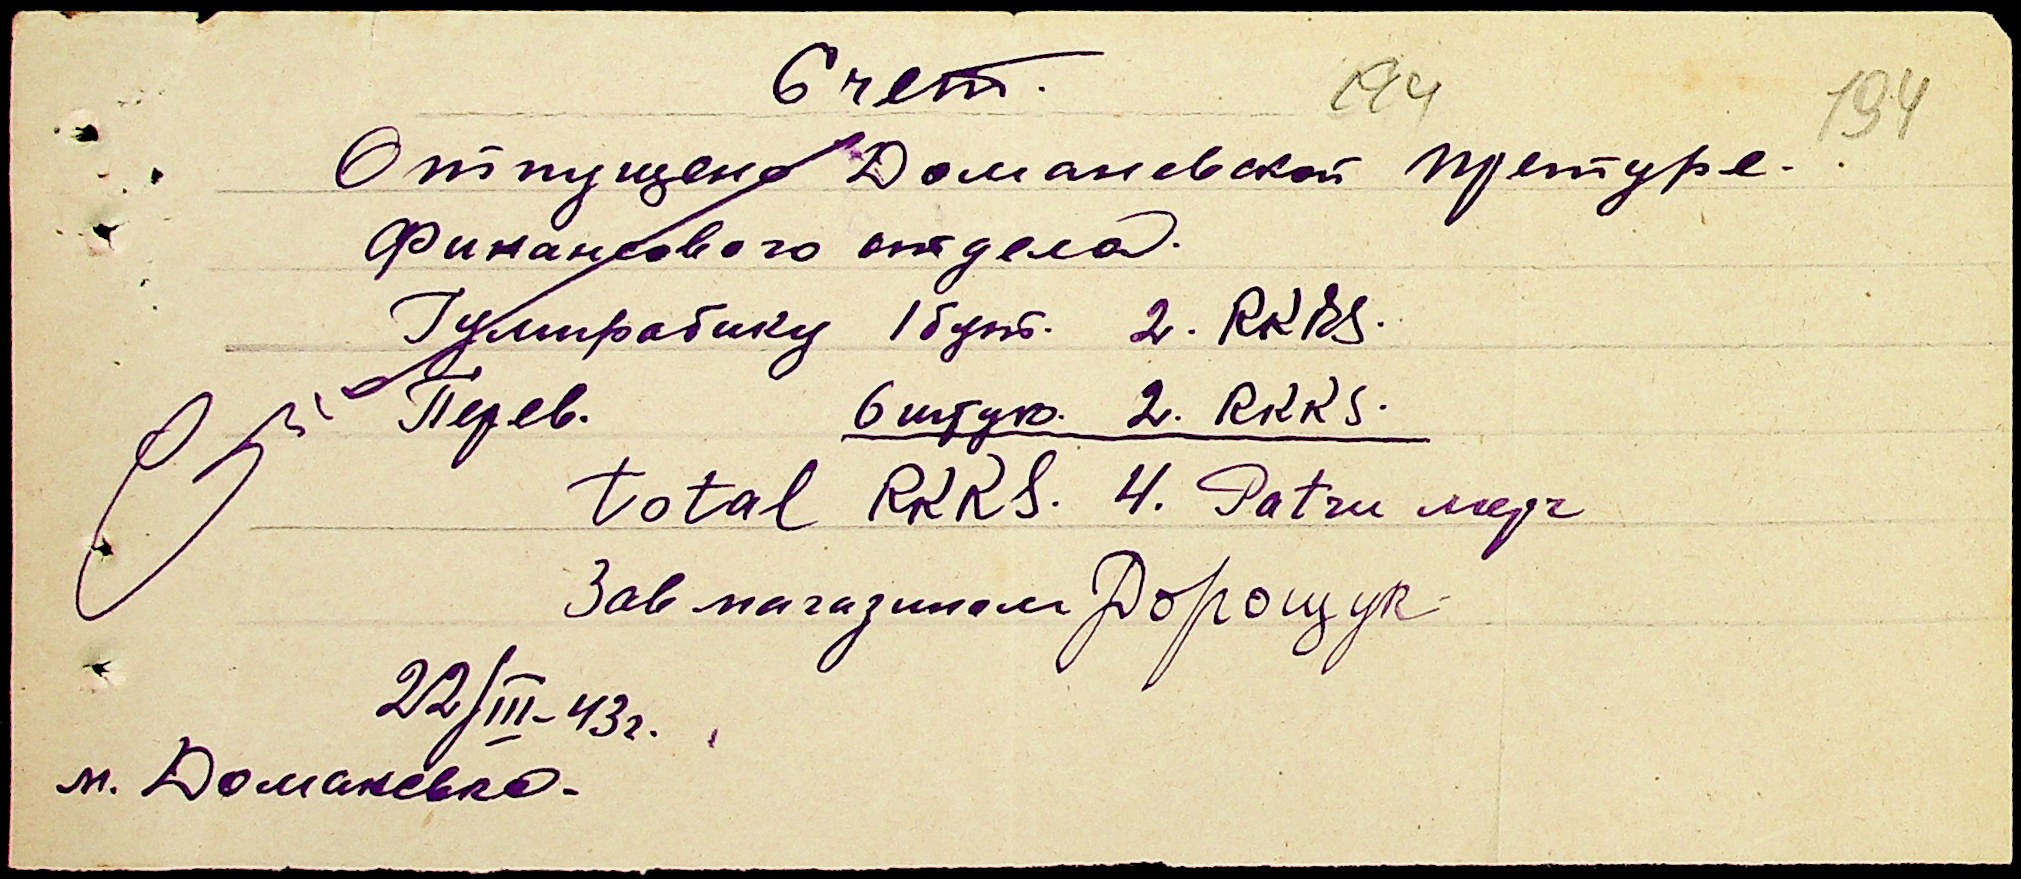 Счет. 194 194
Отпущено Домановской претуре.
Финансового отдела.
Гумирабику 1 бут. 2. RKKS.
Перев. 6 штук. 2. RKKS.
total RKKS. 4. Patru
Зав магазином Дорощук
22/III-43г.
м. Домановка.